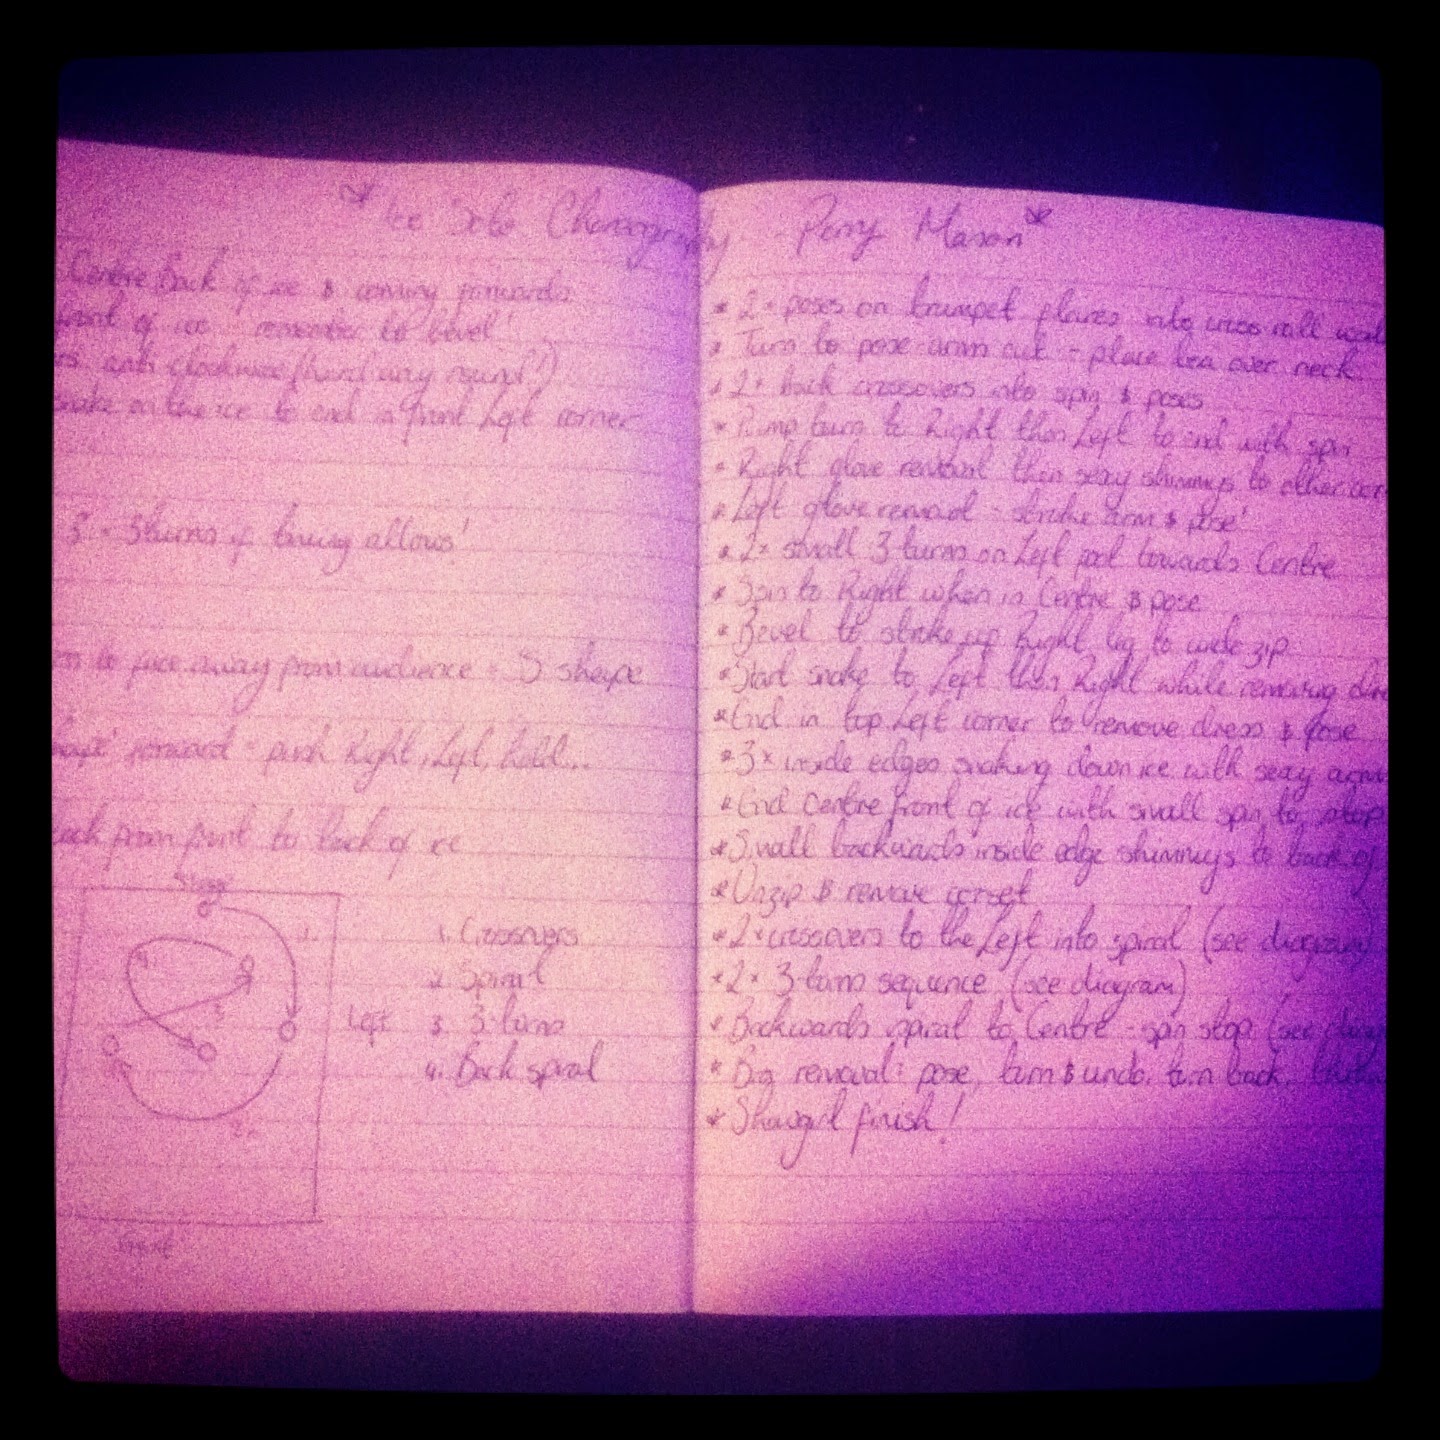 * Ice Solo Choreography - Perry Mason *
Centre Back of ice & coming forwards
front of ice - remember to bevel!
anti clockwise (hard way round!)
snake on the ice to end in front Left corner
3 - 3turns if timing allows!
to face away from audience = S shape
forward - push Right, Left, hold...
back from front to back of ice
Stage
1.
2.
3.
4.
Left
Front
1. Crossovers
2. Spiral
3. 3-turns
4. Back spiral
* 2 x poses on trumpet flares into cross roll
* Turn to pose arm cut - place over neck
* 2 x back crossovers into spin & poses
* Pump turn to Right then Left to end with spin
* Right glove removal then sexy shimmys to other
* Left glove removal - stroke arm & pose!
* 2 x small 3-turns on Left foot towards Centre
* Spin to Right when in Centre & pose
* Bevel to stroke up Right leg to undo zip
* Start snake to Left then Right while removing
* End in top Left corner to remove dress & pose
* 3 x inside edges snaking down ice with sexy arms
* End Centre front of ice with small spin to stop
* Small backwards inside edge shimmeys to back of
* Unzip & remove corset
* 2 x crossovers to the Left into spiral (see diagram)
* 2 x 3-turn sequence (see diagram)
* Backwards spiral to Centre - spin stop (see
* removal: pose, turn & undo, turn back,
* Showgirl finish!